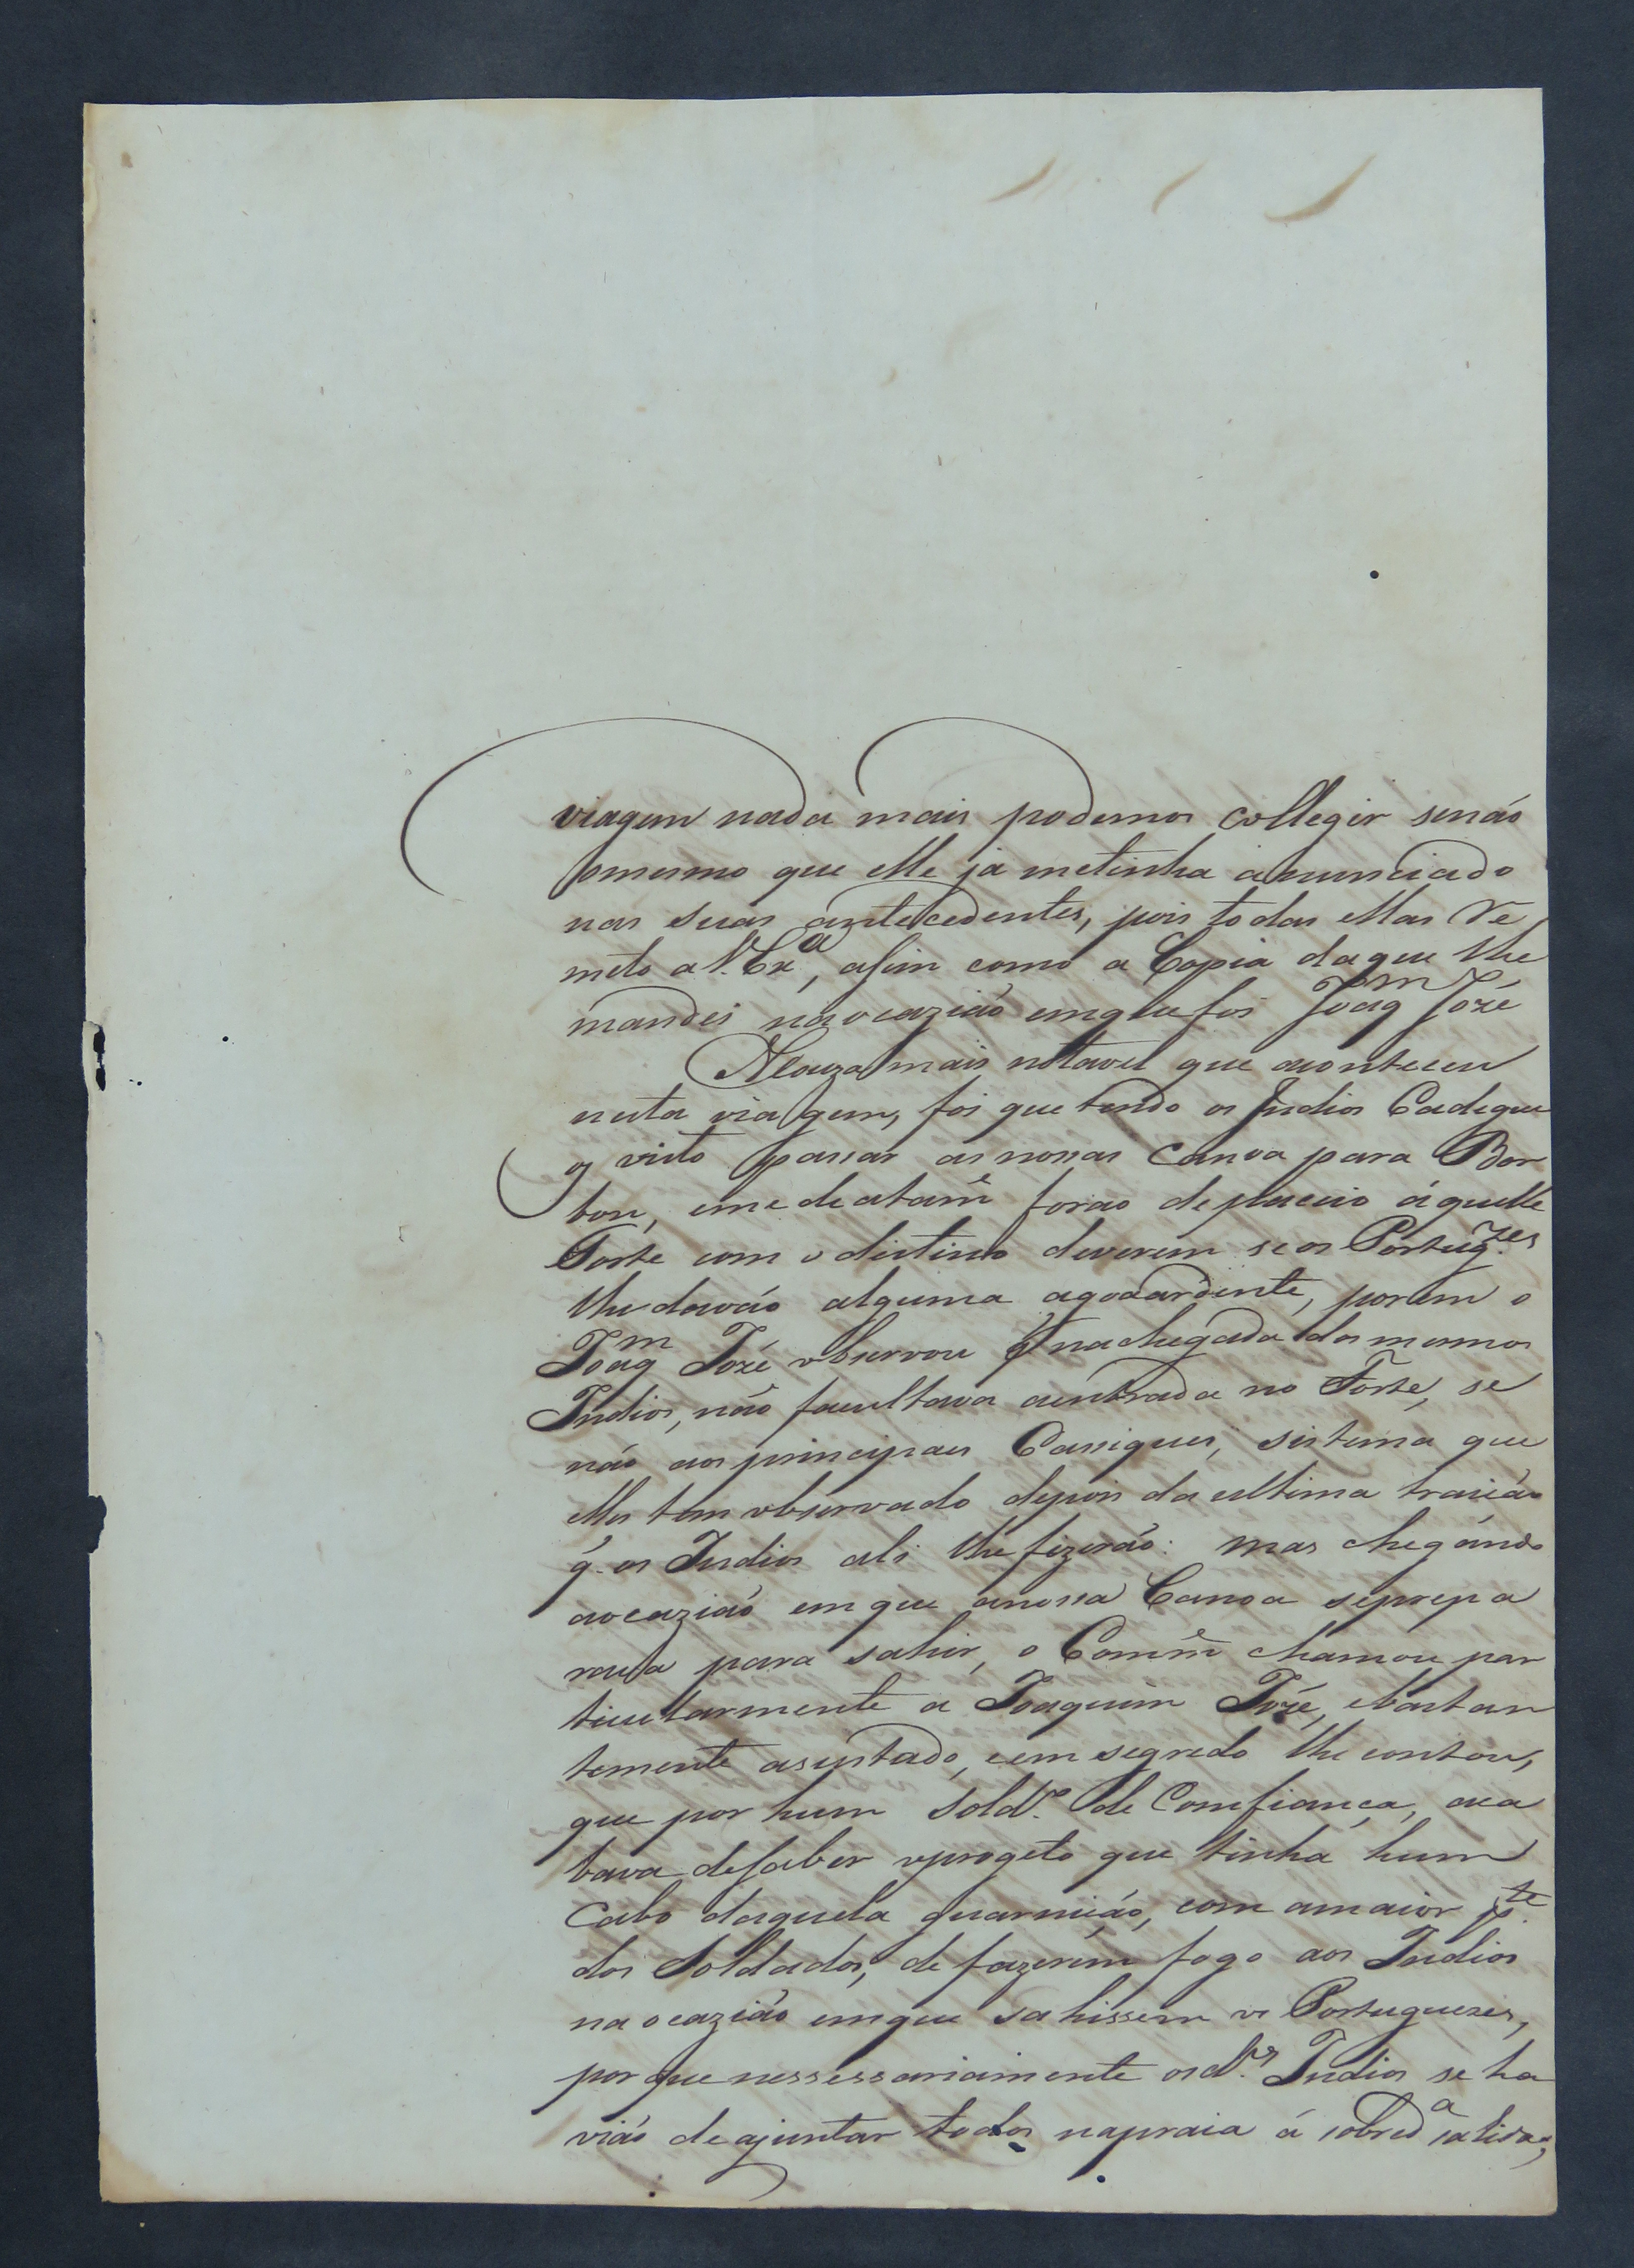 viagem nada mais podemos collegir senáo
omesmo que elle já metinha anunciado
nas suas antecedentes, pois todas ellas re
meto a V. Exª, asim como a Copia daque lhe
mandei naocaziáo emque foi Joaqm Jozé
A Couza mais notavel que aconteceu
nesta viagem, foi que tendo os Indios Cadegue
os visto passar as nossas Canoa para Bor
bon, emedeatamê forao depasseio áquelle
Forte com o distino deverem se os Portugzes
lhe daváo alguma agoaardente, porem o
Joaqm Jozé observou q̃ nachegada dos mesmos
Indios, não facultava aentrada no Forte, se
náo aos principaes Cassiques, sistema que
elles tem observado depois da ultima traiçáo
q̃ os Indios ali lhe fizeráo: mas chegando
aocaziáo em que anossa Canoa seprepa
rava para sahir, o Comê chamou par
ticularmente a Joaquim Jozé, ebastan
temente asustado, eem segredo lhe contou,
que por hum Soldº. de Comfiança, aca
bava desaber oprogeto que tinha hum
Cabo daquela guarniçáo, com amaior pte.
dos Soldados, de fazerem fogo aos Indios
na ocaziáo emque sahissem os Portuguezes,
por que nessessariamente osdºs. Indios se ha
viáo de ajuntar todos napraia á sobredª sahida,